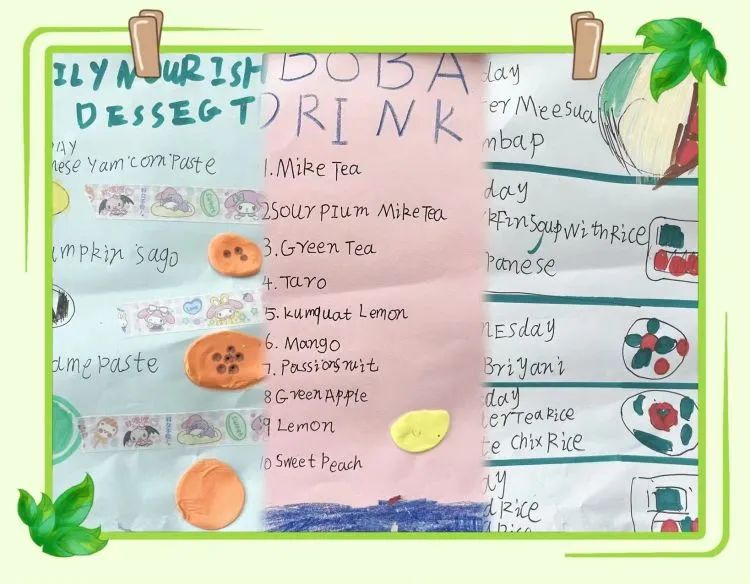 ILY NOURISH
DESSEGT
AY
nese Yam'corn'Paste
umpkin Sago
ame Paste
BOBA
DRINK
1. Mike Tea
2 Sour Pium Mike Tea
3. Green Tea
4. Taro
5. kumquat Lemon
6. Mango
7. Passionsruit
8 Green Apple
9 Lemon
10 Sweet Peach
day
er Meesua
mbap
day
kFinSoup With Rice
panese
nesday
Briyani
day
er Tea Rice
te Chix Rice
ay
d Rice